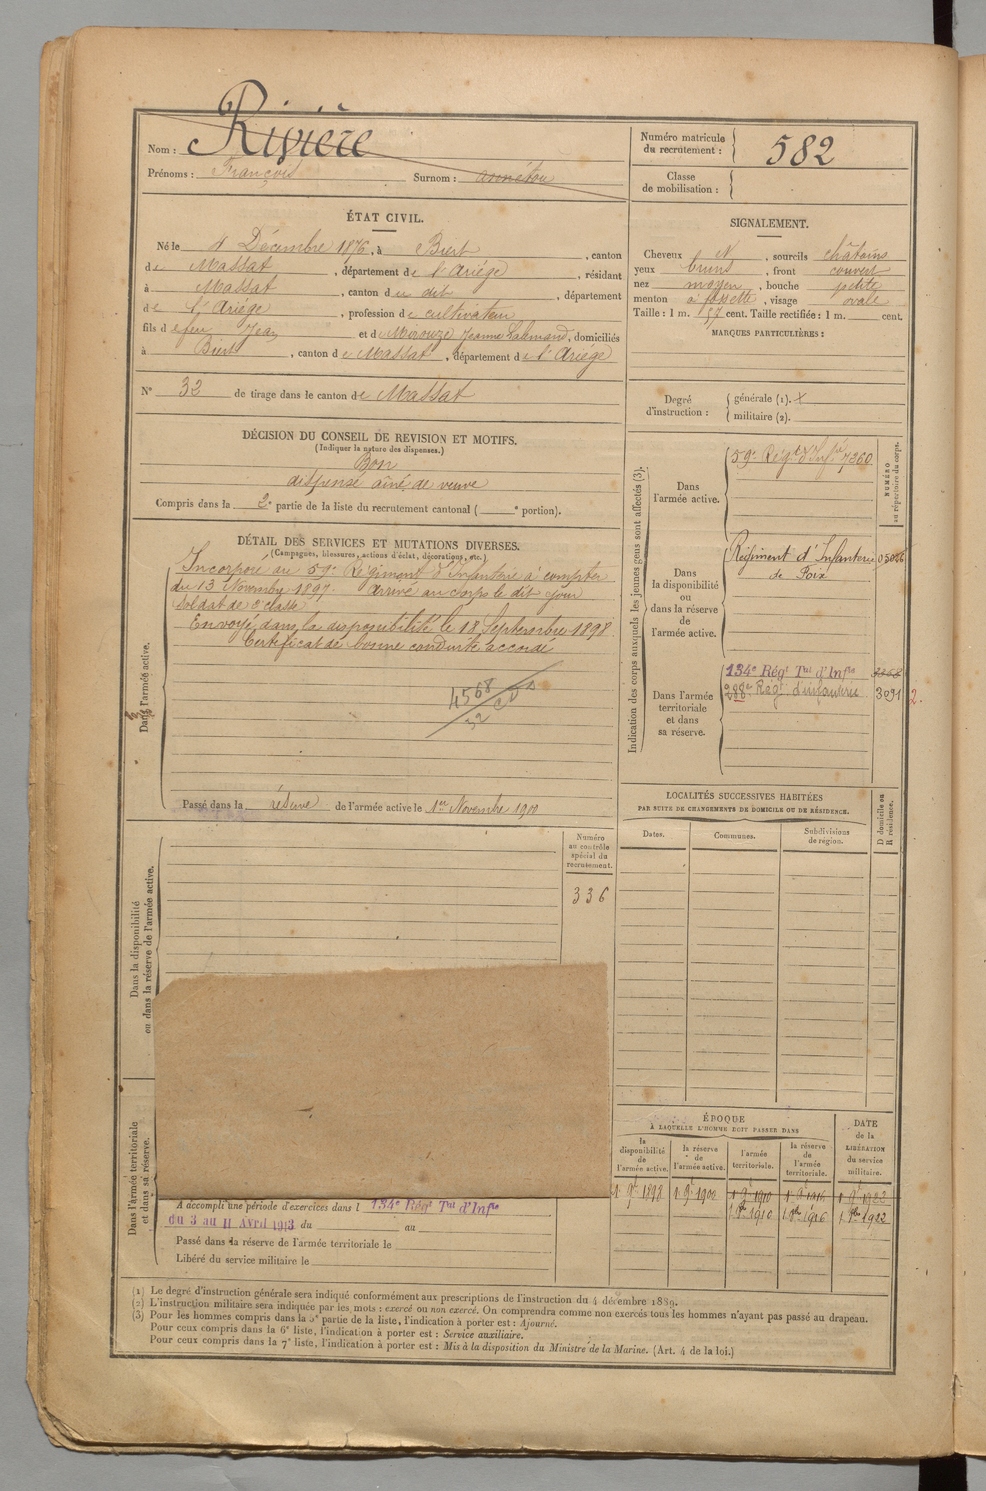 Nom : Rivière
Prénoms : François Surnom : annéton
Numéro matricule du recrutement : 582
Classe de mobilisation :
ÉTAT CIVIL.
Né le 1 Décembre 1876, à Biert, canton
de Massat, département de l'Ariége, résidant
à Massat, canton du dit, département
de l'Ariége, profession de cultivateur
fils de feu Jean et de Mirouze Jeanne, domiciliés
à Biert, canton de Massat, département de l'Ariége
N° 32 de tirage dans le canton de Massat
SIGNALEMENT.
Cheveux N, sourcils châtains
yeux bruns, front couvert
nez moyen, bouche petite
menton à fossette, visage ovale
Taille : 1 m. 57 cent. Taille rectifiée : 1 m. cent.
MARQUES PARTICULIÈRES :
Degré d'instruction : générale (1). X
militaire (2).
DÉCISION DU CONSEIL DE REVISION ET MOTIFS.
(Indiquer la nature des dispenses.)
Bon
dispensé aîné de veuve
Compris dans la 2e partie de la liste du recrutement cantonal ( e portion).
DÉTAIL DES SERVICES ET MUTATIONS DIVERSES.
(Campagnes, blessures, actions d'éclat, décorations, etc.)
Dans l'armée active.
Incorporé au 59e Régiment d'Infanterie à compter
du 13 Novembre 1897. Arrivé au corps le dit jour
soldat de 2e classe
Envoyé dans la disponibilité le 18 Septembre 1898
Certificat de bonne conduite accordé
4568
32
Passé dans la réserve de l'armée active le 1er Novembre 1900
Indication des corps auxquels les jeunes gens sont affectés (3).
NUMÉRO au répertoire du corps.
Dans l'armée active.
59e Régt d'Infie 7360
Dans la disponibilité ou dans la réserve de l'armée active.
Régiment d'Infanterie
de Foix
Dans l'armée territoriale et dans sa réserve.
134e Régt Tal d'Infie
288e Régt d'infanterie 3091 2.
LOCALITÉS SUCCESSIVES HABITÉES
PAR SUITE DE CHANGEMENTS DE DOMICILE OU DE RÉSIDENCE.
Dates. Communes. Subdivisions de région. D domicile ou R résidence.
Dans la disponibilité ou dans la réserve de l'armée active.
Numéro au contrôle spécial du recrutement.
336
Dans l'armée territoriale et dans sa réserve.
A accompli une période d'exercices dans l 134e Régt Tal d'Infie
du 3 au 11 Avril 1913 du au
Passé dans la réserve de l'armée territoriale le
Libéré du service militaire le
ÉPOQUE
A LAQUELLE L'HOMME DOIT PASSER DANS
la disponibilité de l'armée active. la réserve de l'armée active. l'armée territoriale. la réserve de l'armée territoriale. DATE de la LIBÉRATION du service militaire.
1 9e 1898 1 9e 1900 1 9e 1910 1 9e 1916 1 9e 1922
1 8bre 1910 1 8bre 1916 1 8bre 1922
(1) Le degré d'instruction générale sera indiqué conformément aux prescriptions de l'instruction du 4 décembre 1889.
(2) L'instruction militaire sera indiquée par les mots : exercé ou non exercé. On comprendra comme non exercés tous les hommes n'ayant pas passé au drapeau.
(3) Pour les hommes compris dans la 5e partie de la liste, l'indication à porter est : Ajourné.
Pour ceux compris dans la 6e liste, l'indication à porter est : Service auxiliaire.
Pour ceux compris dans la 7e liste, l'indication à porter est : Mis à la disposition du Ministre de la Marine. (Art. 4 de la loi.)